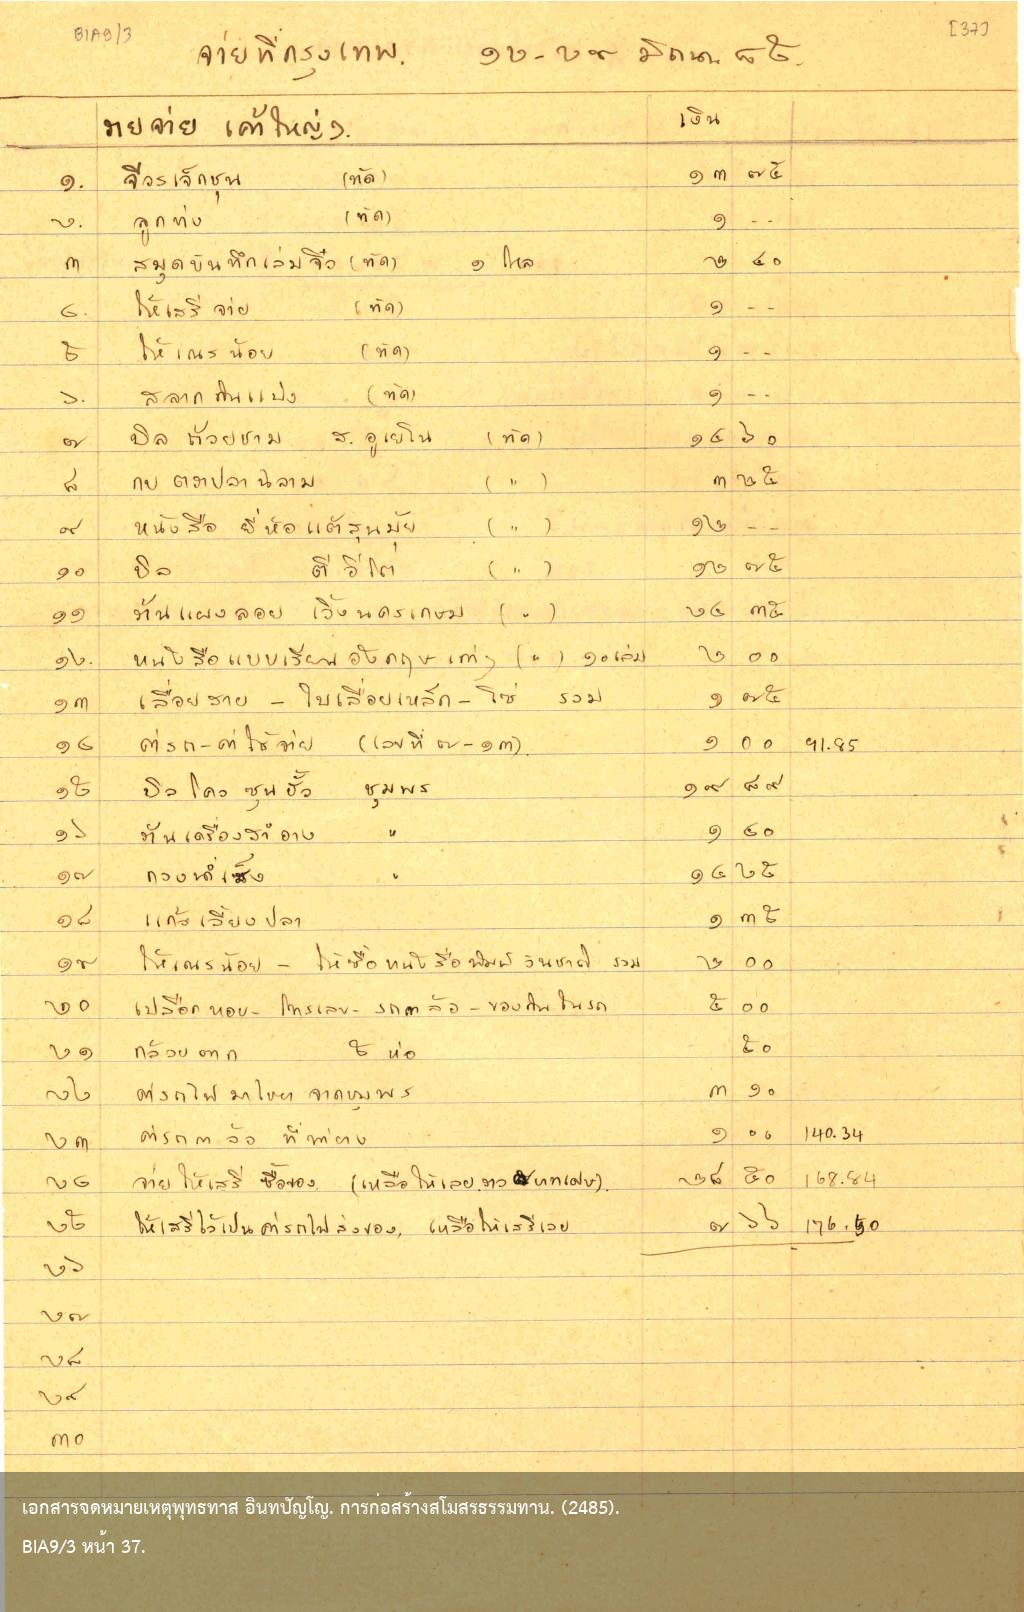 BIA9/3 [37]
จ่ายที่กรุงเทพ. ๑๖-๒๙ มิถุนา ๘๕.
รายจ่าย เค้าใหญ่ๆ. เงิน
๑. จีวรเจ๊กชุน (ทัด) ๑๓ ๗๕
๒. ลูกท่ง (ทัด) ๑ --
๓ สมุดบันทึกเล่มจิ๋ว (ทัด) ๑ โหล ๒ ๔๐
๔. ให้เสรี จ่าย (ทัด) ๑ --
๕ ให้เณรน้อย (ทัด) ๑ --
๖. สลากกินแบ่ง (ทัด) ๑ --
๗ บิล ถ้วยชาม ส. อูเยโน (ทัด) ๑๔ ๖๐
๘ กบ ตราปลาฉลาม ( " ) ๓ ๒๕
๙ หนังสือ ยี่ห้อแต้สุนมุ้ย ( " ) ๑๒ --
๑๐ บิล ตีอี่โต๋ ( " ) ๑๒ ๗๕
๑๑ ร้านแผงลอย เวิ้งนครเกษม ( " ) ๒๔ ๓๕
๑๒. หนังสือแบบเรียน อังกฤษ เก่าๆ ( " ) ๑๐ เล่ม ๒ ๐๐
๑๓ เลื่อยสาย - ใบเลื่อยเหล็ก - โซ่ รวม ๑ ๗๕
๑๔ ค่ารถ-ค่าใช้จ่าย (เลขที่ ๗-๑๓). ๑ ๐๐ 91.85
๑๕ บิลโควซุนฮั้ว ชุมพร ๑๙ ๘๙
๑๖ ร้านเครื่องสำอาง " ๑ ๔๐
๑๗ กวงนำเซ้ง " ๑๔ ๒๕
๑๘ แก้วเลี้ยงปลา ๑ ๓๕
๑๙ ให้เณรน้อย - ให้ซื้อหนังสือพิมพ์วันชาติ รวม ๒ ๐๐
๒๐ เปลือกหอย- โทรเลข- รถลาก - ของกินในรถ ๕ ๐๐
๒๑ กล้วยตาก ๕ ห่อ ๕๐
๒๒ ค่ารถไฟ มาไชยา จากชุมพร ๓ ๑๐
๒๓ ค่ารถ ที่ท่ายาง ๑ ๐๐ 140.34
๒๔ จ่ายให้เสรี ซื้อของ. (เหลือให้เลย บาทเศษ). ๒๘ ๕๐ 168.84
๒๕ ให้เสรีไว้เป็นค่ารถไฟส่งของ, เหลือให้เสรีเลย ๗ ๖๖ 176.50
๒๖
๒๗
๒๘
๒๙
๓๐
เอกสารจดหมายเหตุพุทธทาส อินทปัญโญ. การก่อสร้างสโมสรธรรมทาน. (2485).
BIA9/3 หน้า 37.